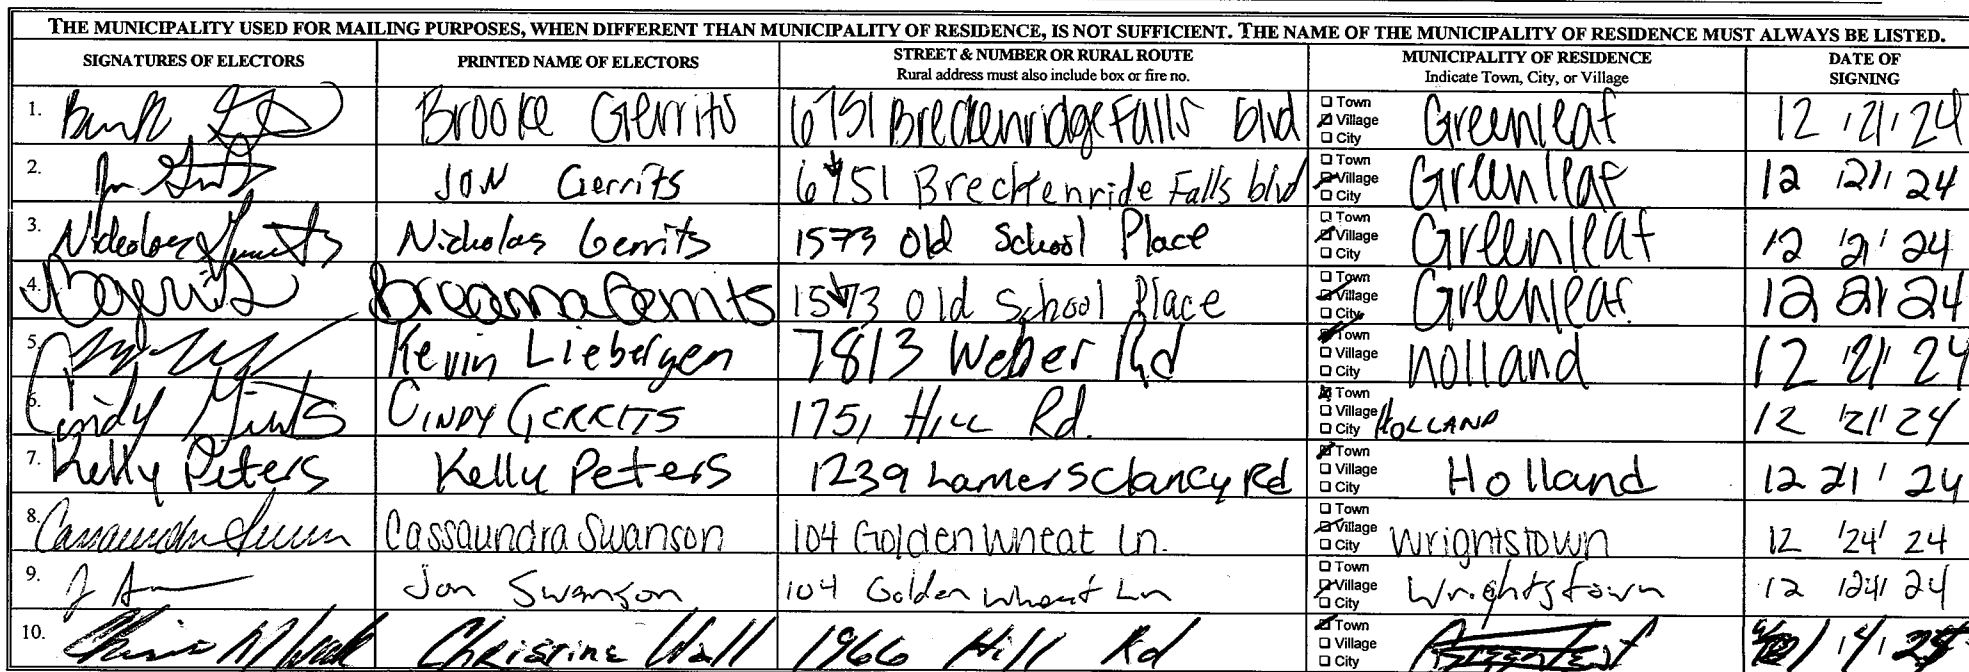 THE MUNICIPALITY USED FOR MAILING PURPOSES, WHEN DIFFERENT THAN MUNICIPALITY OF RESIDENCE, IS NOT SUFFICIENT. THE NAME OF THE MUNICIPALITY OF RESIDENCE MUST ALWAYS BE LISTED.
SIGNATURES OF ELECTORS PRINTED NAME OF ELECTORS STREET & NUMBER OR RURAL ROUTE MUNICIPALITY OF RESIDENCE DATE OF
Rural address must also include box or fire no. Indicate Town, City, or Village SIGNING
1. Brooke Gerrits 6751 Breckenridge Falls blvd Town Village City Greenleaf 12 / 21 / 24
2. Jon Gerrits 6751 Breckenride Falls blvd Town Village City Greenleaf 12 / 21 / 24
3. Nicholas Gerrits Nicholas Gerrits 1573 Old School Place Town Village City Greenleaf 12 / 21 / 24
4. BGerrits Breanna Gerrits 1573 Old School Place Town Village City Greenleaf 12 21 24
5. Kevin Liebergen 7813 Weber Rd Town Village City Holland 12 / 21 / 24
6. Cindy Gerrits CINDY GERRITS 1751 Hill Rd. Town Village City HOLLAND 12 / 21 / 24
7. Kelly Peters Kelly Peters 1239 Lamers Clancy Rd Town Village City Holland 12 21 / 24
8. Cassaundra Swanson Cassaundra Swanson 104 Golden Wheat Ln. Town Village City Wrightstown 12 / 24 / 24
9. Jon Swanson 104 Golden Wheat Ln Town Village City Wrightstown 12 / 24 / 24
10. Christine Wall 1966 Hill Rd Town Village City